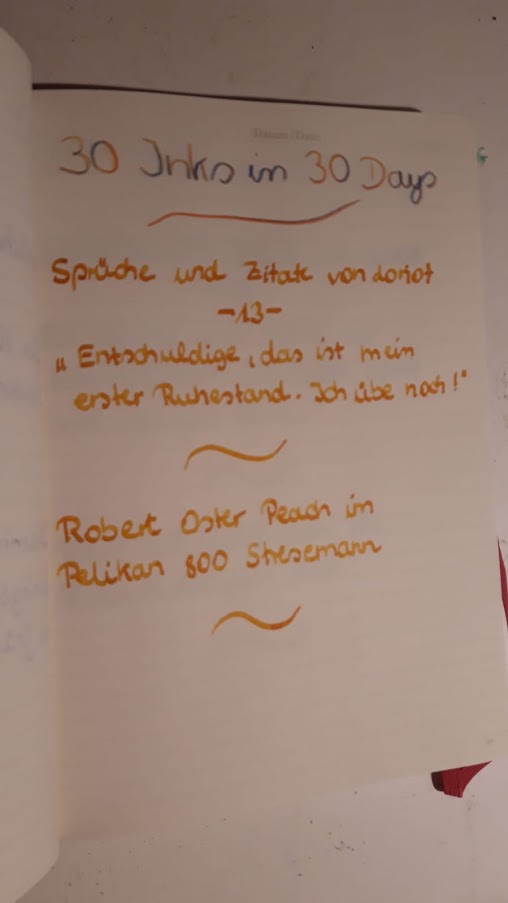 Datum/Date:
30 Inks in 30 Days
Sprüche und Zitate von Loriot
-13-
„Entschuldige, das ist mein
erster Ruhestand. Ich übe noch!"
Robert Oster Peach im
Pelikan 800 Stresemann